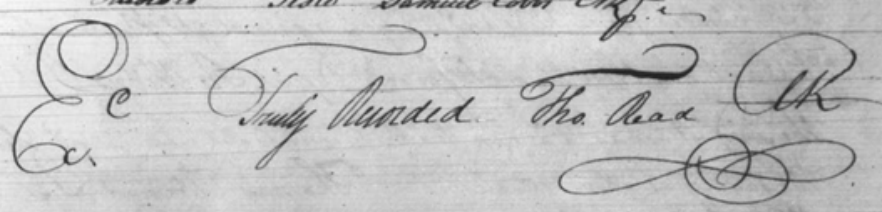 Teste Samuel Cobbs Clk
Ec Truly Recorded Tho. Read Clk